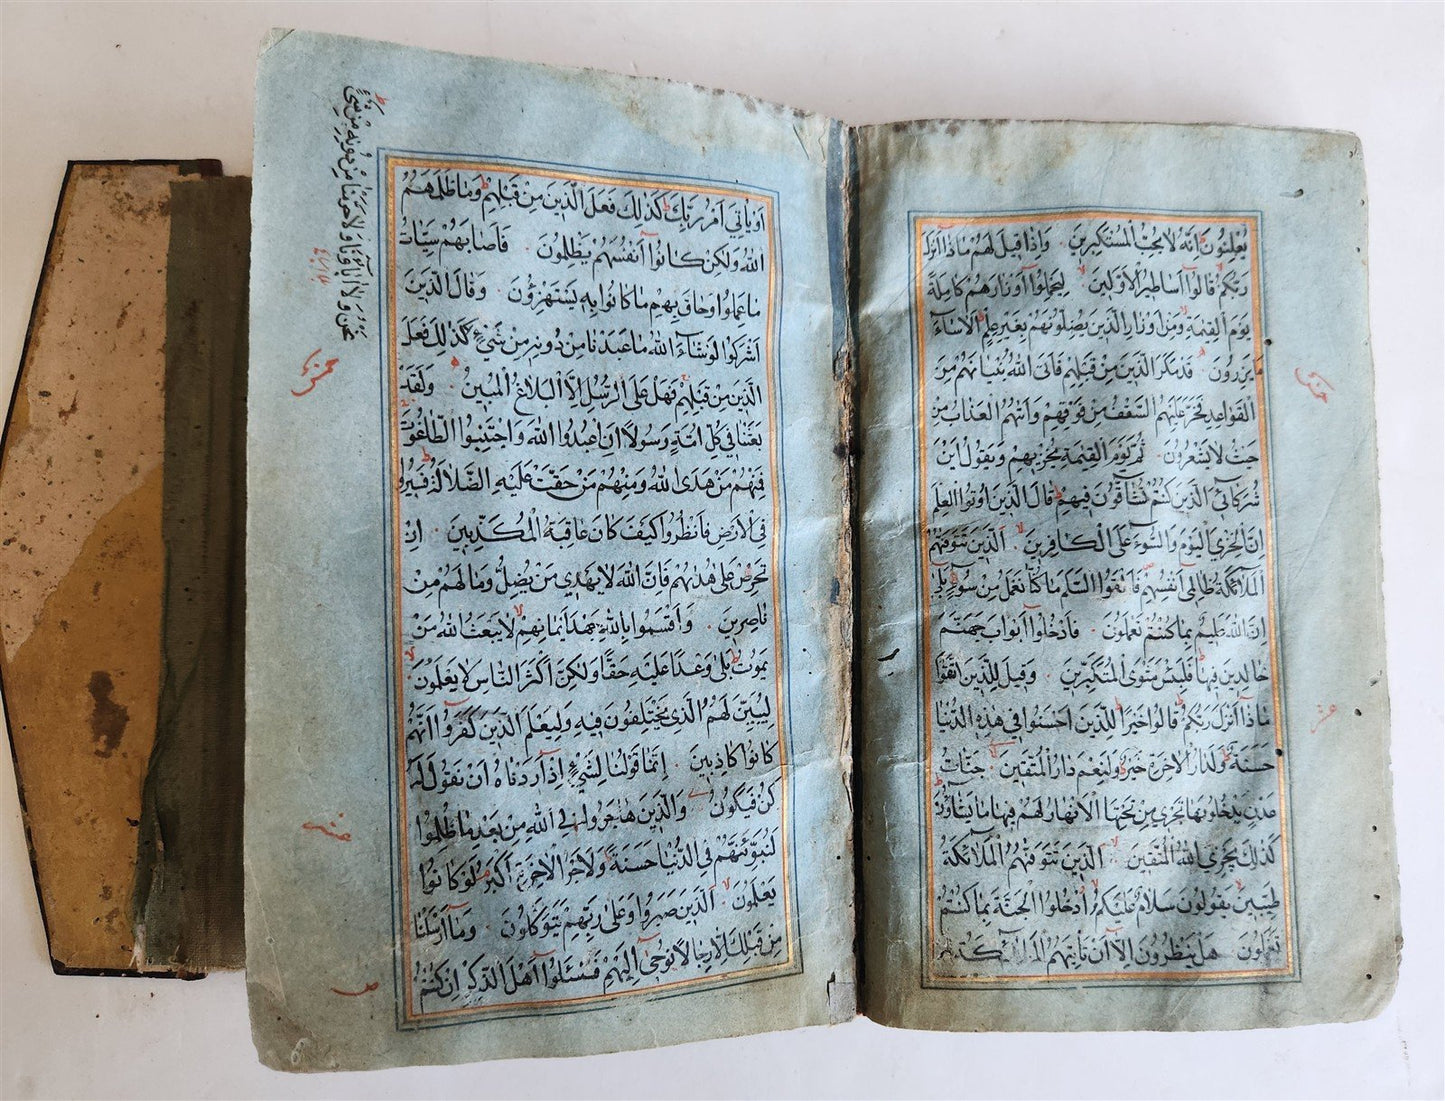 يُعْلِنُونَ اِنَّهُ لَا يُحِبُّ الْمُسْتَكْبِرِينَ وَاِذَا قِيلَ لَهُمْ مَاذَا اَنْزَلَ
رَبُّكُمْ قَالُوا اَسَاطِيرُ الْاَوَّلِينَ لِيَحْمِلُوا اَوْزَارَهُمْ كَامِلَةً
يَوْمَ الْقِيٰمَةِ وَمِنْ اَوْزَارِ الَّذِينَ يُضِلُّونَهُمْ بِغَيْرِ عِلْمٍ اَلَا سَاءَ
مَا يَزِرُونَ قَدْ مَكَرَ الَّذِينَ مِنْ قَبْلِهِمْ فَاَتَى اللّٰهُ بُنْيَانَهُمْ مِنَ
الْقَوَاعِدِ فَخَرَّ عَلَيْهِمُ السَّقْفُ مِنْ فَوْقِهِمْ وَاَتٰيهُمُ الْعَذَابُ مِنْ
حَيْثُ لَا يَشْعُرُونَ ثُمَّ يَوْمَ الْقِيٰمَةِ يُخْزِيهِمْ وَيَقُولُ اَيْنَ
شُرَكَائِيَ الَّذِينَ كُنْتُمْ تُشَاقُّونَ فِيهِمْ قَالَ الَّذِينَ اُوتُوا الْعِلْمَ
اِنَّ الْخِزْيَ الْيَوْمَ وَالسُّوءَ عَلَى الْكَافِرِينَ اَلَّذِينَ تَتَوَفّٰيهُمُ
الْمَلَائِكَةُ ظَالِمِي اَنْفُسِهِمْ فَاَلْقَوُا السَّلَمَ مَا كُنَّا نَعْمَلُ مِنْ سُوءٍ بَلٰى
اِنَّ اللّٰهَ عَلِيمٌ بِمَا كُنْتُمْ تَعْمَلُونَ فَادْخُلُوا اَبْوَابَ جَهَنَّمَ
خَالِدِينَ فِيهَا فَلَبِئْسَ مَثْوَى الْمُتَكَبِّرِينَ وَقِيلَ لِلَّذِينَ اتَّقَوْا
مَاذَا اَنْزَلَ رَبُّكُمْ قَالُوا خَيْرًا لِلَّذِينَ اَحْسَنُوا فِي هٰذِهِ الدُّنْيَا
حَسَنَةٌ وَلَدَارُ الْاٰخِرَةِ خَيْرٌ وَلَنِعْمَ دَارُ الْمُتَّقِينَ جَنَّاتُ
عَدْنٍ يَدْخُلُونَهَا تَجْرِي مِنْ تَحْتِهَا الْاَنْهَارُ لَهُمْ فِيهَا مَا يَشَاؤُنَ
كَذٰلِكَ يَجْزِي اللّٰهُ الْمُتَّقِينَ اَلَّذِينَ تَتَوَفّٰيهُمُ الْمَلَائِكَةُ
طَيِّبِينَ يَقُولُونَ سَلَامٌ عَلَيْكُمُ ادْخُلُوا الْجَنَّةَ بِمَا كُنْتُمْ
تَعْمَلُونَ هَلْ يَنْظُرُونَ اِلَّا اَنْ تَاْتِيَهُمُ الْمَلَائِكَةُ
اَوْ يَاْتِيَ اَمْرُ رَبِّكَ كَذٰلِكَ فَعَلَ الَّذِينَ مِنْ قَبْلِهِمْ وَمَا ظَلَمَهُمُ
اللّٰهُ وَلٰكِنْ كَانُوا اَنْفُسَهُمْ يَظْلِمُونَ فَاَصَابَهُمْ سَيِّاٰتُ
مَا عَمِلُوا وَحَاقَ بِهِمْ مَا كَانُوا بِهِ يَسْتَهْزِؤُنَ وَقَالَ الَّذِينَ
اَشْرَكُوا لَوْ شَاءَ اللّٰهُ مَا عَبَدْنَا مِنْ دُونِهِ مِنْ شَيْءٍ كَذٰلِكَ فَعَلَ
الَّذِينَ مِنْ قَبْلِهِمْ فَهَلْ عَلَى الرُّسُلِ اِلَّا الْبَلَاغُ الْمُبِينُ وَلَقَدْ
بَعَثْنَا فِي كُلِّ اُمَّةٍ رَسُولًا اَنِ اعْبُدُوا اللّٰهَ وَاجْتَنِبُوا الطَّاغُوتَ
فَمِنْهُمْ مَنْ هَدَى اللّٰهُ وَمِنْهُمْ مَنْ حَقَّتْ عَلَيْهِ الضَّلَالَةُ فَسِيرُوا
فِي الْاَرْضِ فَانْظُرُوا كَيْفَ كَانَ عَاقِبَةُ الْمُكَذِّبِينَ اِنْ
تَحْرِصْ عَلٰى هُدٰيهُمْ فَاِنَّ اللّٰهَ لَا يَهْدِي مَنْ يُضِلُّ وَمَا لَهُمْ مِنْ
نَاصِرِينَ وَاَقْسَمُوا بِاللّٰهِ جَهْدَ اَيْمَانِهِمْ لَا يَبْعَثُ اللّٰهُ مَنْ
يَمُوتُ بَلٰى وَعْدًا عَلَيْهِ حَقًّا وَلٰكِنَّ اَكْثَرَ النَّاسِ لَا يَعْلَمُونَ
لِيُبَيِّنَ لَهُمُ الَّذِي يَخْتَلِفُونَ فِيهِ وَلِيَعْلَمَ الَّذِينَ كَفَرُوا اَنَّهُمْ
كَانُوا كَاذِبِينَ اِنَّمَا قَوْلُنَا لِشَيْءٍ اِذَا اَرَدْنَاهُ اَنْ نَقُولَ لَهُ
كُنْ فَيَكُونُ وَالَّذِينَ هَاجَرُوا فِي اللّٰهِ مِنْ بَعْدِ مَا ظُلِمُوا
لَنُبَوِّئَنَّهُمْ فِي الدُّنْيَا حَسَنَةً وَلَاَجْرُ الْاٰخِرَةِ اَكْبَرُ لَوْ كَانُوا
يَعْلَمُونَ اَلَّذِينَ صَبَرُوا وَعَلٰى رَبِّهِمْ يَتَوَكَّلُونَ وَمَا اَرْسَلْنَا
مِنْ قَبْلِكَ اِلَّا رِجَالًا نُوحِي اِلَيْهِمْ فَسْئَلُوا اَهْلَ الذِّكْرِ اِنْ كُنْتُمْ
نَحْنُ وَلَا اٰبَاؤُنَا وَلَا حَرَّمْنَا مِنْ دُونِهِ مِنْ شَيْءٍ